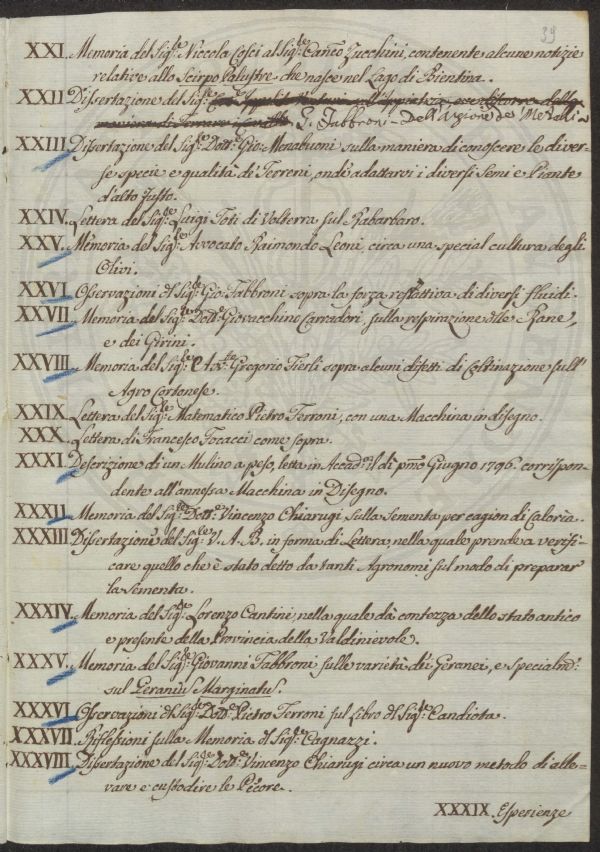 39
XXI. Memoria del Sig.re Niccola Cosci al Sig.re Can.co Zucchini, contenente alcune notizie
relative allo Scirpo Palustre che nasce nel Lago di Bientina.
XXII Dissertazione del Sig.re
G. Fabbroni - Dell'Azione de' Metalli
XXIII. Dissertazione del Sig.re Dott.re Gio: Menabuoni sulla maniera di conoscere le diver-
se specie e qualità di Terreni, ond'adattarvi i diversi Semi e Piante
d'alto fusto.
XXIV. Lettera del Sig.re Luigi Toti di Volterra sul Rabarbaro.
XXV. Memoria del Sig.re Avvocato Raimondo Leoni, circa una special cultura degli
Olivi.
XXVI. Osservazioni del Sig.re Gio: Fabbroni sopra la forza refrattiva di diversi fluidi.
XXVII. Memoria del Sig.re Dott.re Giovacchino Carradori, sulla respirazione delle Rane,
e dei Girini.
XXVIII. Memoria del Sig.re Gregorio Fierli sopra alcuni difetti di Coltivazione sull'
Agro Cortonese.
XXIX. Lettera del Sig.re Matematico Pietro Ferroni, con una Macchina in disegno.
XXX. Lettera di Francesco Focacci come sopra.
XXXI. Descrizione di un Mulino a peso, letta in Accad.a il dì p.mo Giugno 1796. corrispon-
dente all'annessa Macchina in Disegno.
XXXII. Memoria del Sig.re Dott.re Vincenzo Chiarugi sulla Sementa per cagion di Caloria.
XXXIII Dissertazione del Sig.re V. A. B. in forma di Lettera, nella quale prende a verifi-
care quello che è stato detto da tanti Agronomi sul modo di preparar
la sementa.
XXXIV. Memoria del Sig.re Lorenzo Cantini, nella quale dà contezza dello stato antico
e presente della Provincia della Valdinievole.
XXXV. Memoria del Sig.re Giovanni Fabbroni sulle varietà dei Geranei, e specialm.e
sul Geraniũ Marginatũ.
XXXVI. Osservazioni del Sig.re Dott.re Pietro Ferroni sul Libro del Sig.re Candiota.
XXXVII. Riflessioni sulla Memoria del Sig.re Cagnazzi.
XXXVIII. Dissertazione del Sig.re Dott.re Vincenzo Chiarugi circa un nuovo metodo di alle-
vare e custodire le Pecore.
XXXIX. Esperienze